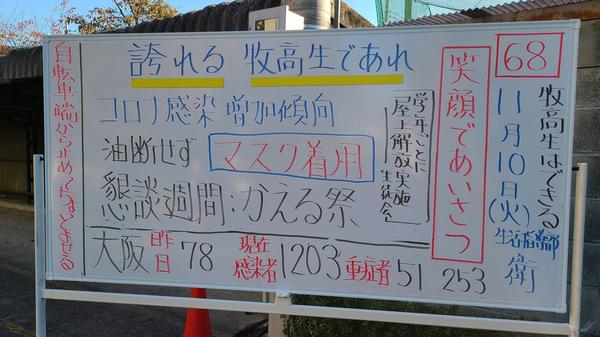 68
牧高生はできる
11月10日(火)
生活指導部
衛
笑顔であいさつ
誇れる 牧高生であれ
コロナ感染増加傾向
油断せず マスク着用
学年ごとに
「屋上解放実施
生徒会」
懇談週間:かえる祭
大阪昨日78 現在感染者1203 重症者51 253
自転車端から止めてちょっとませる